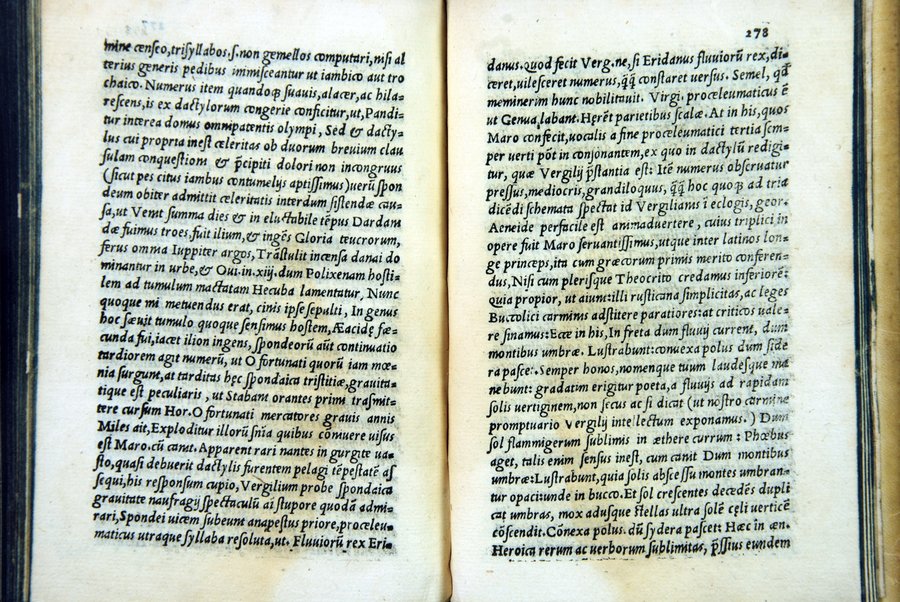 mine cenſeo, triſyllabos, ſ. non gemellos computari, niſi al
terius generis pedibus immiſceantur ut iambico aut tro
chaico. Numerus item quandoq; ſuauis, alacer, ac hila=
reſcens, is ex dactylorum congerie conficitur, ut, Pandi=
tur interea domus omnipatentis olympi, Sed & dacty=
lus cui propria ineſt celeritas ob duorum breuium clau
ſulam conqueſtioni & p̄cipiti dolori non incongruus
(ſicut pes citus iambus contumelijs aptiſſimus) uerū ſpon
deum obiter admittit celeritatis interdum ſiſtendæ cau=
ſa, ut Venit ſumma dies & in eluctabile tēpus Dardani
dæ fuimus troes, fuit ilium, & ingēs Gloria teucrorum,
ferus omnia Iuppiter argos, Trāſtulit incenſa danai do
minantur in urbe, & Oui. in. xiij. dum Polixenam hoſti=
lem ad tumulum mactatam Hecuba lamentatur, Nunc
quoque mi metuendus erat, cinis ipſe ſepulti, In genus
hoc ſæuit tumulo quoque ſenſimus hoſtem, Æacidę fœ=
cunda fui, iacet ilion ingens, ſpondeorū aūt continuatio
tardiorem agit numerū, ut O fortunati quorū iam mœ=
nia ſurgunt, at tarditas hęc ſpondaica triſtitiæ, grauita=
tique eſt peculiaris, ut Stabant orantes primi traſmit=
tere curſum Hor. O fortunati mercatores grauis annis
Miles ait, Exploditur illorū ſnīa quibus cōmuere uiſus
eſt Maro. cū canit. Apparent rari nantes in gurgite ua=
ſto, quaſi debuerit dactylis furentem pelagi tēpeſtatē aſ
ſequi, his reſponſum cupio, Vergilium probe ſpondaica
grauitate naufragij ſpectaculū ai ſtupore quodā admi=
rari, Spondei uicem ſubeunt anapeſtus priore, proceleu=
maticus utraque ſyllaba reſoluta, ut. Fluuiorū rex Eri=
278
danus. quod fecit Verg. ne, ſi Eridanus fluuiorū rex, di=
ceret, uileſceret numerus, q̄q̄ conſtaret uerſus. Semel, qd̄
meminerim hunc nobilitauit. Virgi. proceleumaticus ē
ut Genua labant. Hęrēt parietibus ſcalæ. At in his, quos
Maro confecit, uocalis a fine proceleumatici tertia ſem=
per uerti pōt in conſonantem, ex quo in dactylū redigi=
tur, quæ Vergilij p̄ſtantia eſt: Itē numerus obſeruatur
preſſus, mediocris, grandiloquus, q̄q̄ hoc quoq; ad tria
dicēdi ſchemata ſpectat id Vergilianis ī eclogis, geor=
Aeneide perfacile eſt animaduertere, cuius triplici in
opere fuit Maro ſeruantiſſimus, utque inter latinos lon=
ge princeps, ita cum græcorum primis merito conferen=
dus, Niſi cum plerisque Theocrito credamus inferiorē:
quia propior, ut aiunt: illi ruſticana ſimplicitas, ac leges
Buccolici carminis adſtitere paratiores: at criticos uale=
re ſinamus: Ecce in his, In freta dum fluuij current, dum
montibus umbræ. Luſtrabunt: conuexa polus dum ſide
ra paſcet. Semper honos, nomenque tuum laudeſque ma
nebunt: gradatim erigitur poeta, a fluuijs ad rapidam
ſolis uertiginem, non ſecus ac ſi dicat (ut noſtro carmine
promptuario Vergilij intellectum exponamus.) Dum
ſol flammigerum ſublimis in æthere currum: Phœbus
aget, talis enim ſenſus ineſt, cum canit Dum montibus
umbræ: Luſtrabunt, quia ſolis abſceſſu montes umbran=
tur opaci: unde in bucco. Et ſol creſcentes decedēs dupli
cat umbras, mox aduſque ſtellas ultra ſolē cęli uerticē
cōſcendit. Cōnexa polus. dū ſydera paſcet: Hæc in æn.
Heroica rerum ac uerborum ſublimitas, p̄ſſius eundem